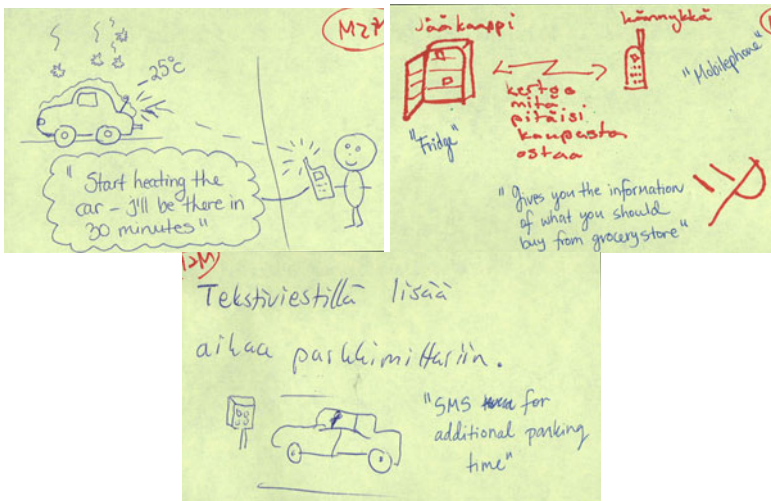 M2M
-25°C
"Start heating the
car – I'll be there in
30 minutes"
jääkaappi
kännykkä
"Mobilephone"
"Fridge"
kertoo
mitä
pitäisi
kaupasta
ostaa
"Gives you the information
of what you should
buy from grocerystore"
M2M
Tekstiviestillä lisää
aikaa parkkimittariin.
"SMS for
additional parking
time"